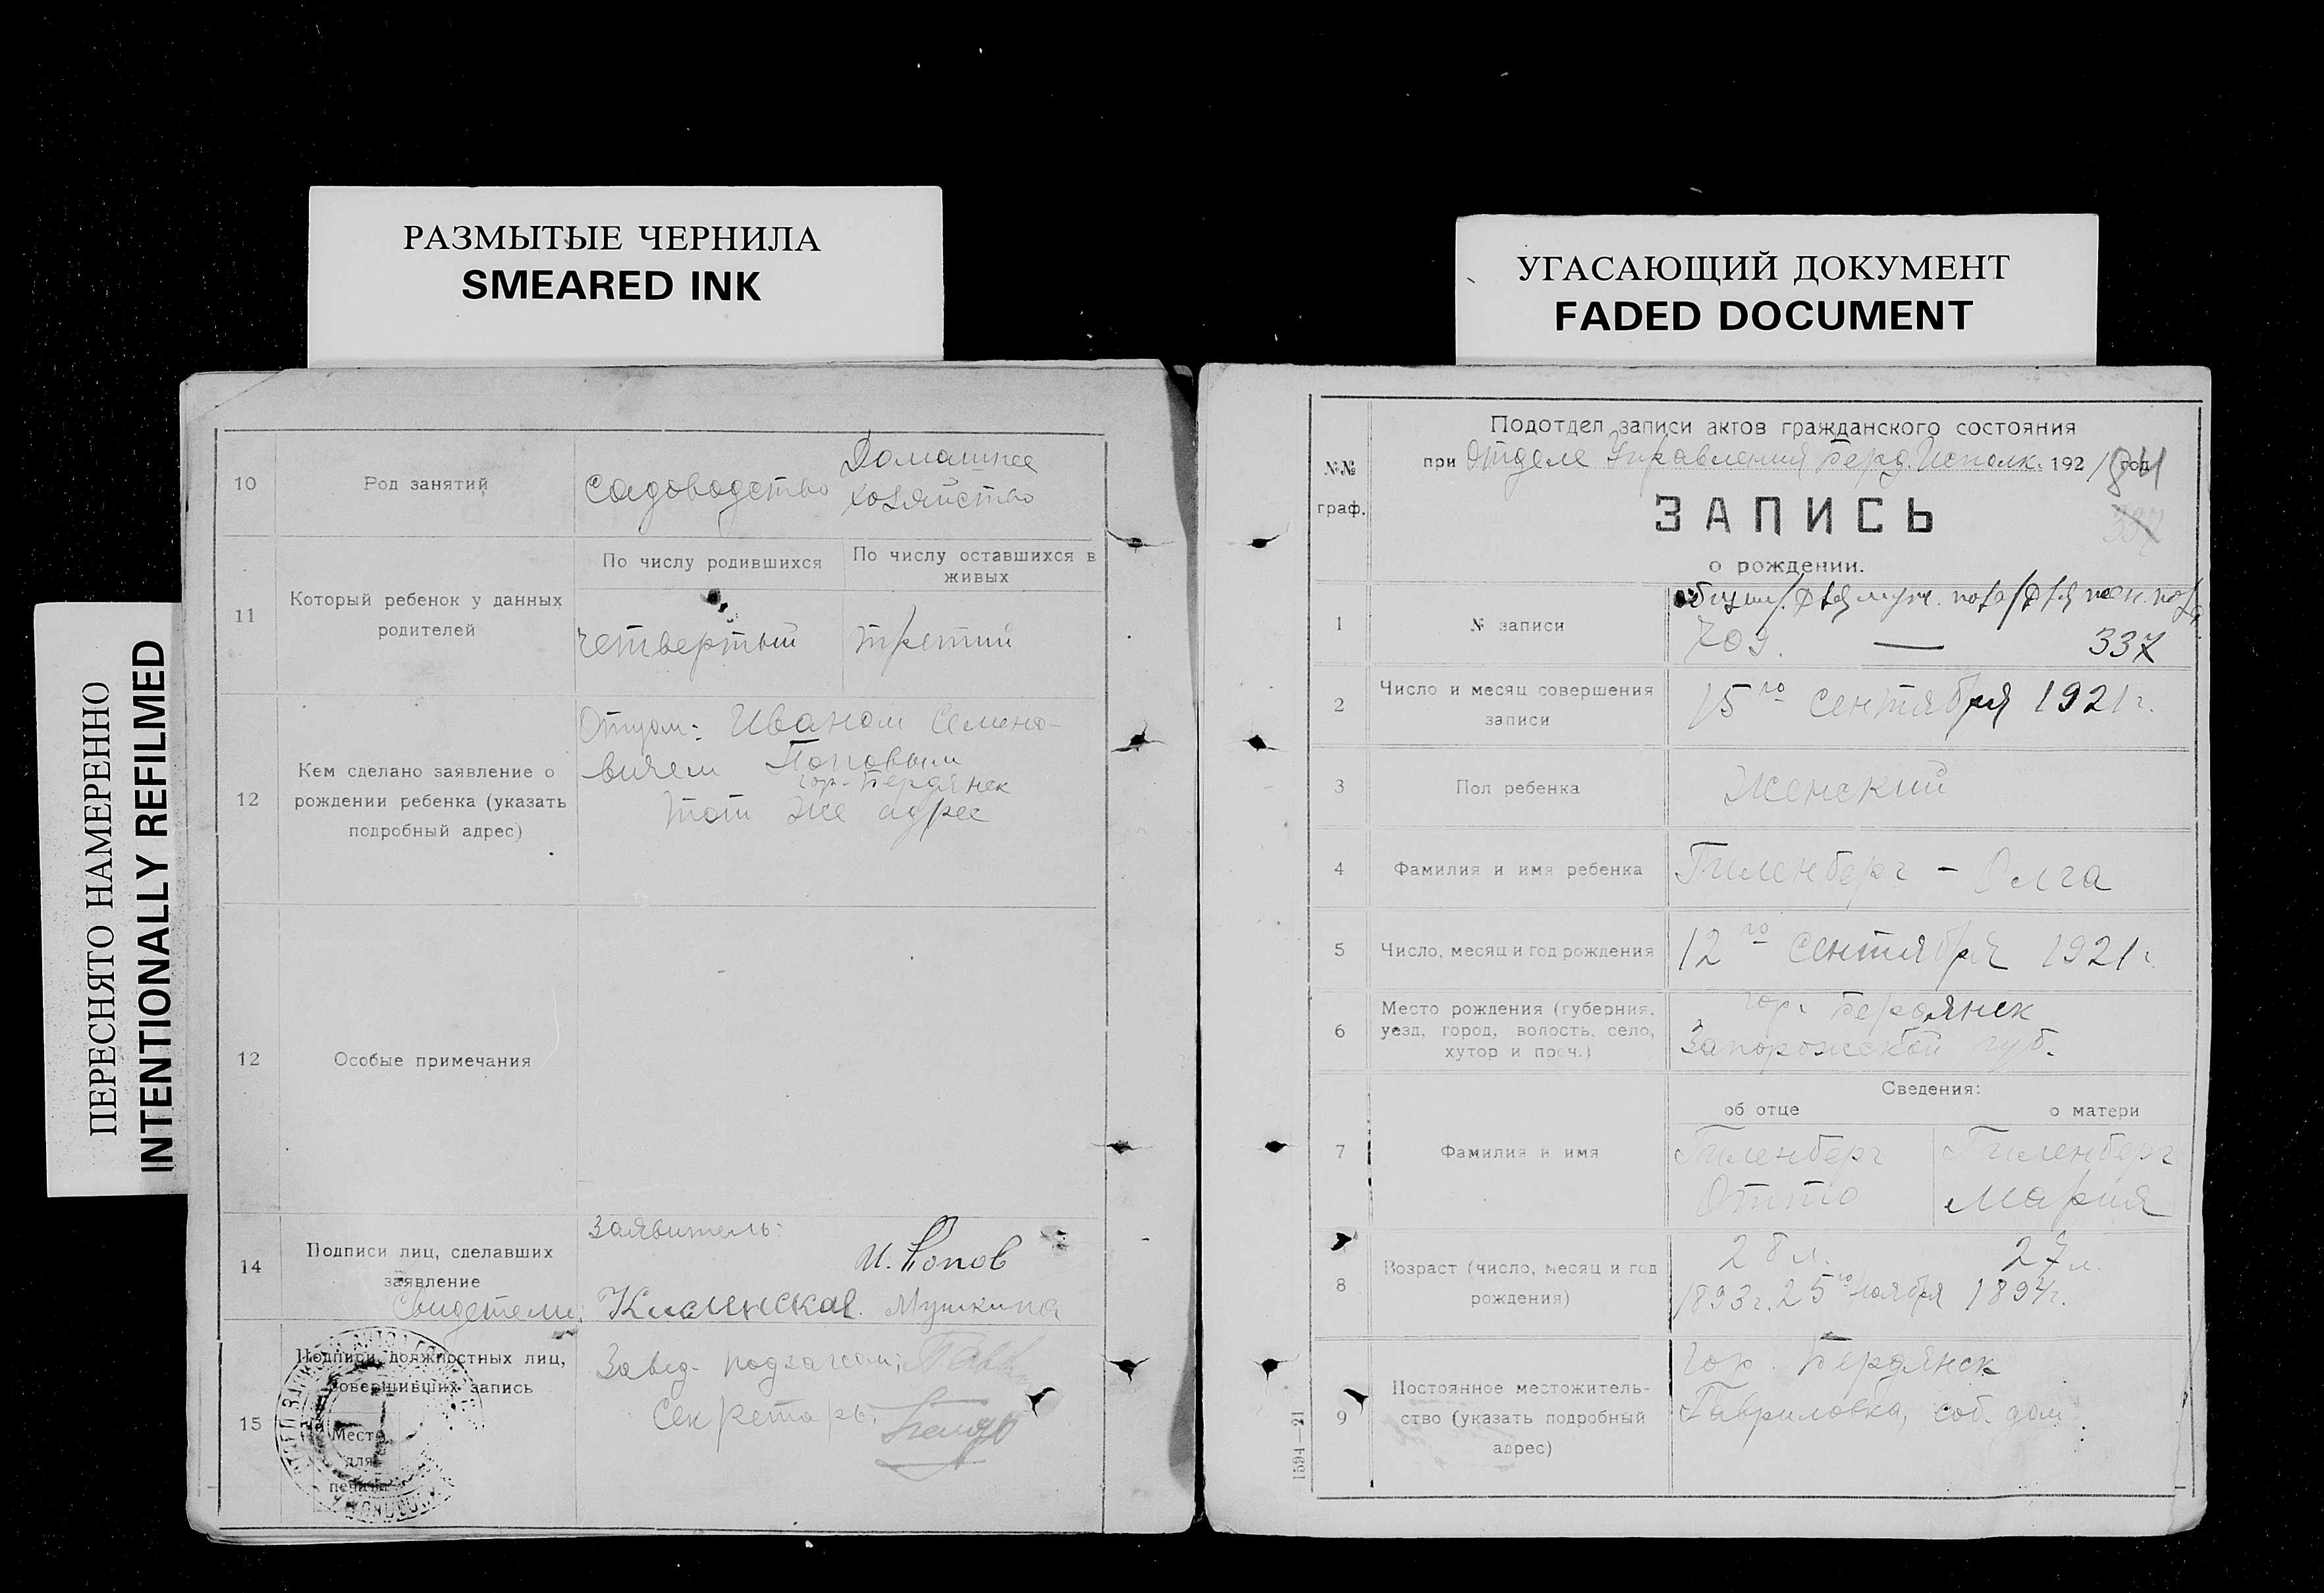 РАЗМЫТЫЕ ЧЕРНИЛА
SMEARED INK
УГАСАЮЩИЙ ДОКУМЕНТ
FADED DOCUMENT
ПЕРЕСНЯТО НАМЕРЕННО
INTENTIONALLY REFILMED
10
Род занятий
садоводство
Домашнее
хозяйство
11
Который ребенок у данных
родителей
По числу родившихся
четвертый
По числу оставшихся в
живых
третий
12
Кем сделано заявление о
рождении ребенка (указать
подробный адрес)
Отцом: Иваном Семено-
вичем Поповым
гор. Бердянск
тот же адрес
12
Особые примечания
14
Подписи лиц, сделавших
заявление
Заявитель:
И. Попов
Свидетели: Мушкина
15
Подписи должностных лиц,
совершивших запись
Место
для
печати
Завед. подзагсом:
Секретарь:
Подотдел записи актов гражданского состояния
при Отделе Управления Берд. Исполк. 1921 год
84
337
№№
граф.
ЗАПИСЬ
о рождении.
1
№ записи
общий/для муж. пола/для жен. пола
709. — 337
2
Число и месяц совершения
записи
15го сентября 1921 г.
3
Пол ребенка
Женский
4
Фамилия и имя ребенка
Гиленберг - Олга
5
Число, месяц и год рождения
12го сентября 1921 г.
6
Место рождения (губерния,
уезд, город, волость, село,
хутор и проч.)
гор. Бердянск
Запорожской губ.
Сведения:
об отце
о матери
7
Фамилия и имя
Гиленберг
Отто
Гиленберг
Мария
8
Возраст (число, месяц и год
рождения)
28 л.
1893 г. 25го ноября
27 л.
1894 г.
9
Постоянное местожитель-
ство (указать подробный
адрес)
гор. Бердянск
Гавриловка, соб. дом
1594—21